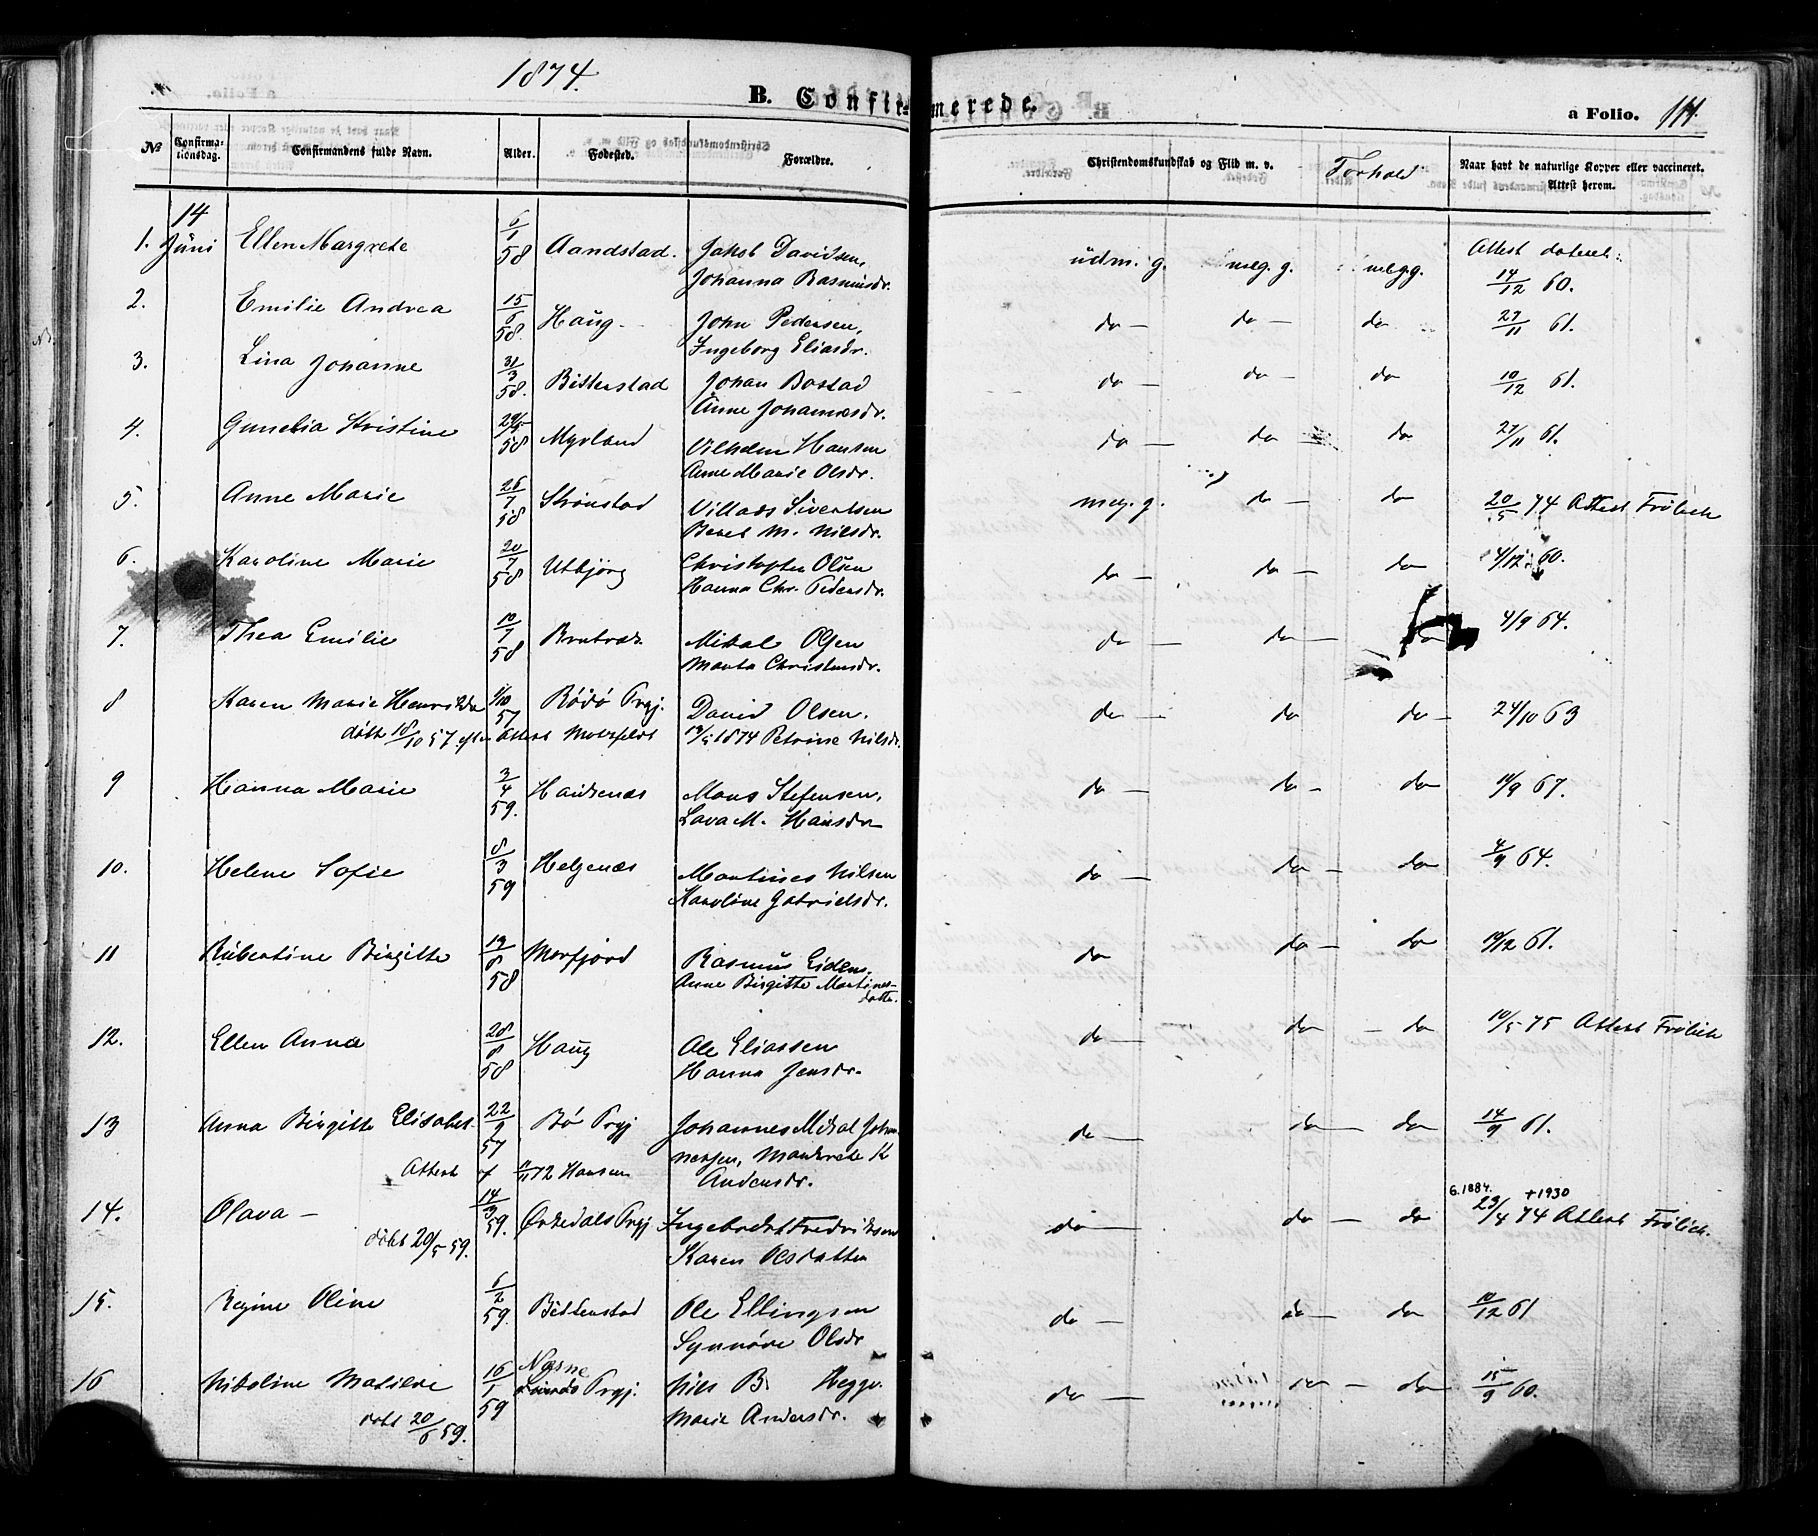 1874.
B. Confirmerede.
a Folio. 111.
№ Confirmationsdag. Confirmandens fulde Navn. Alder. Fødested. Forældre. Christendomskundskab og Flid m. v. Forhold Naar havt de naturlige Kopper eller vaccineret. Attest herom.
14
1. Juni Ellen Margrete 6/1 58 Aandstad. Jakob Davidsen, udm. g. meg. g. megg. Attest dateret:
Johanna Rasmusdr. 14/12 60.
2. Emilie Andrea 15/6 58. Haug. John Pedersen, do do do 27/11 61.
Ingeborg Eliasdr.
3. Lina Johanne 31/3 58. Bitterstad Johan Bostad do do do 10/12 61.
Anne Johannesdr.
4. Gunelia Kristine 29/5 58 Myrland Vilhelm Hansen do do do 27/11 61.
Anne Marie Olsdr.
5. Anne Marie 26/7 58 Strønstad Villads Sivertsen meg. g. do do 20/5 74 Attest Frølich
Beret M. Nilsdr.
6. Karoline Marie 20/7 58 Utbjørg Christopher Olsen do do do 4/12 60.
Hanna Chr. Pedersdr.
7. Thea Emilie 10/7 58 Mikal Olsen do do do 4/9 64.
Marta Christensdr.
8 Karen Marie Henrikka 1/10 57 Rødø Prgj. David Olsen. do do do 24/10 63
døbt 18/10 57 efter Attest 1874 Petrine Nilsdr.
9 Hanna Marie 3/4 59. Haukenæs Mons Stefensen, do do do 14/9 67.
Lava M. Hansdr
10. Helene Sofie 8/3 59 Helgenæs Martines Nilsen do do do 4/9 64.
Karoline Gabrielsdr.
11 Rubertine Birgitte 19/8 58 Morfjord Rasmus Eidens. do do do 10/12 61.
Anne Birgitte Martines-
datter.
12. Ellen Anna 28/8 58 Haug Ole Eliassen do do do 10/5 75 Attest Frølich
Hanna Jensdr.
13 Anna Birgitte Elisabet 22/9 57 Bø Prgj Johannes Mikal Johan- do do do 14/9 61.
nessen, Mankrete K
Attest 72 Hansen Andersdr.
6.1884. +1930
14. Olava — 14/3 59. Ørkedals Prgj Ingebrekt Fredriksen do do do 23/4 74 Attest Frølich.
døbt 29/5 59. Karen Olsdatter
15. Regine Oline 6/2 59. Bitterstad Ole Ellingsen do do do 10/12 61
Synnøve Olsdr
16 Nikoline Matilde 16/1 59 Næsne Prgj. Nils B. Hegge. do do do 15/9 60.
døbt 20/6 59. Marie Andersdr.